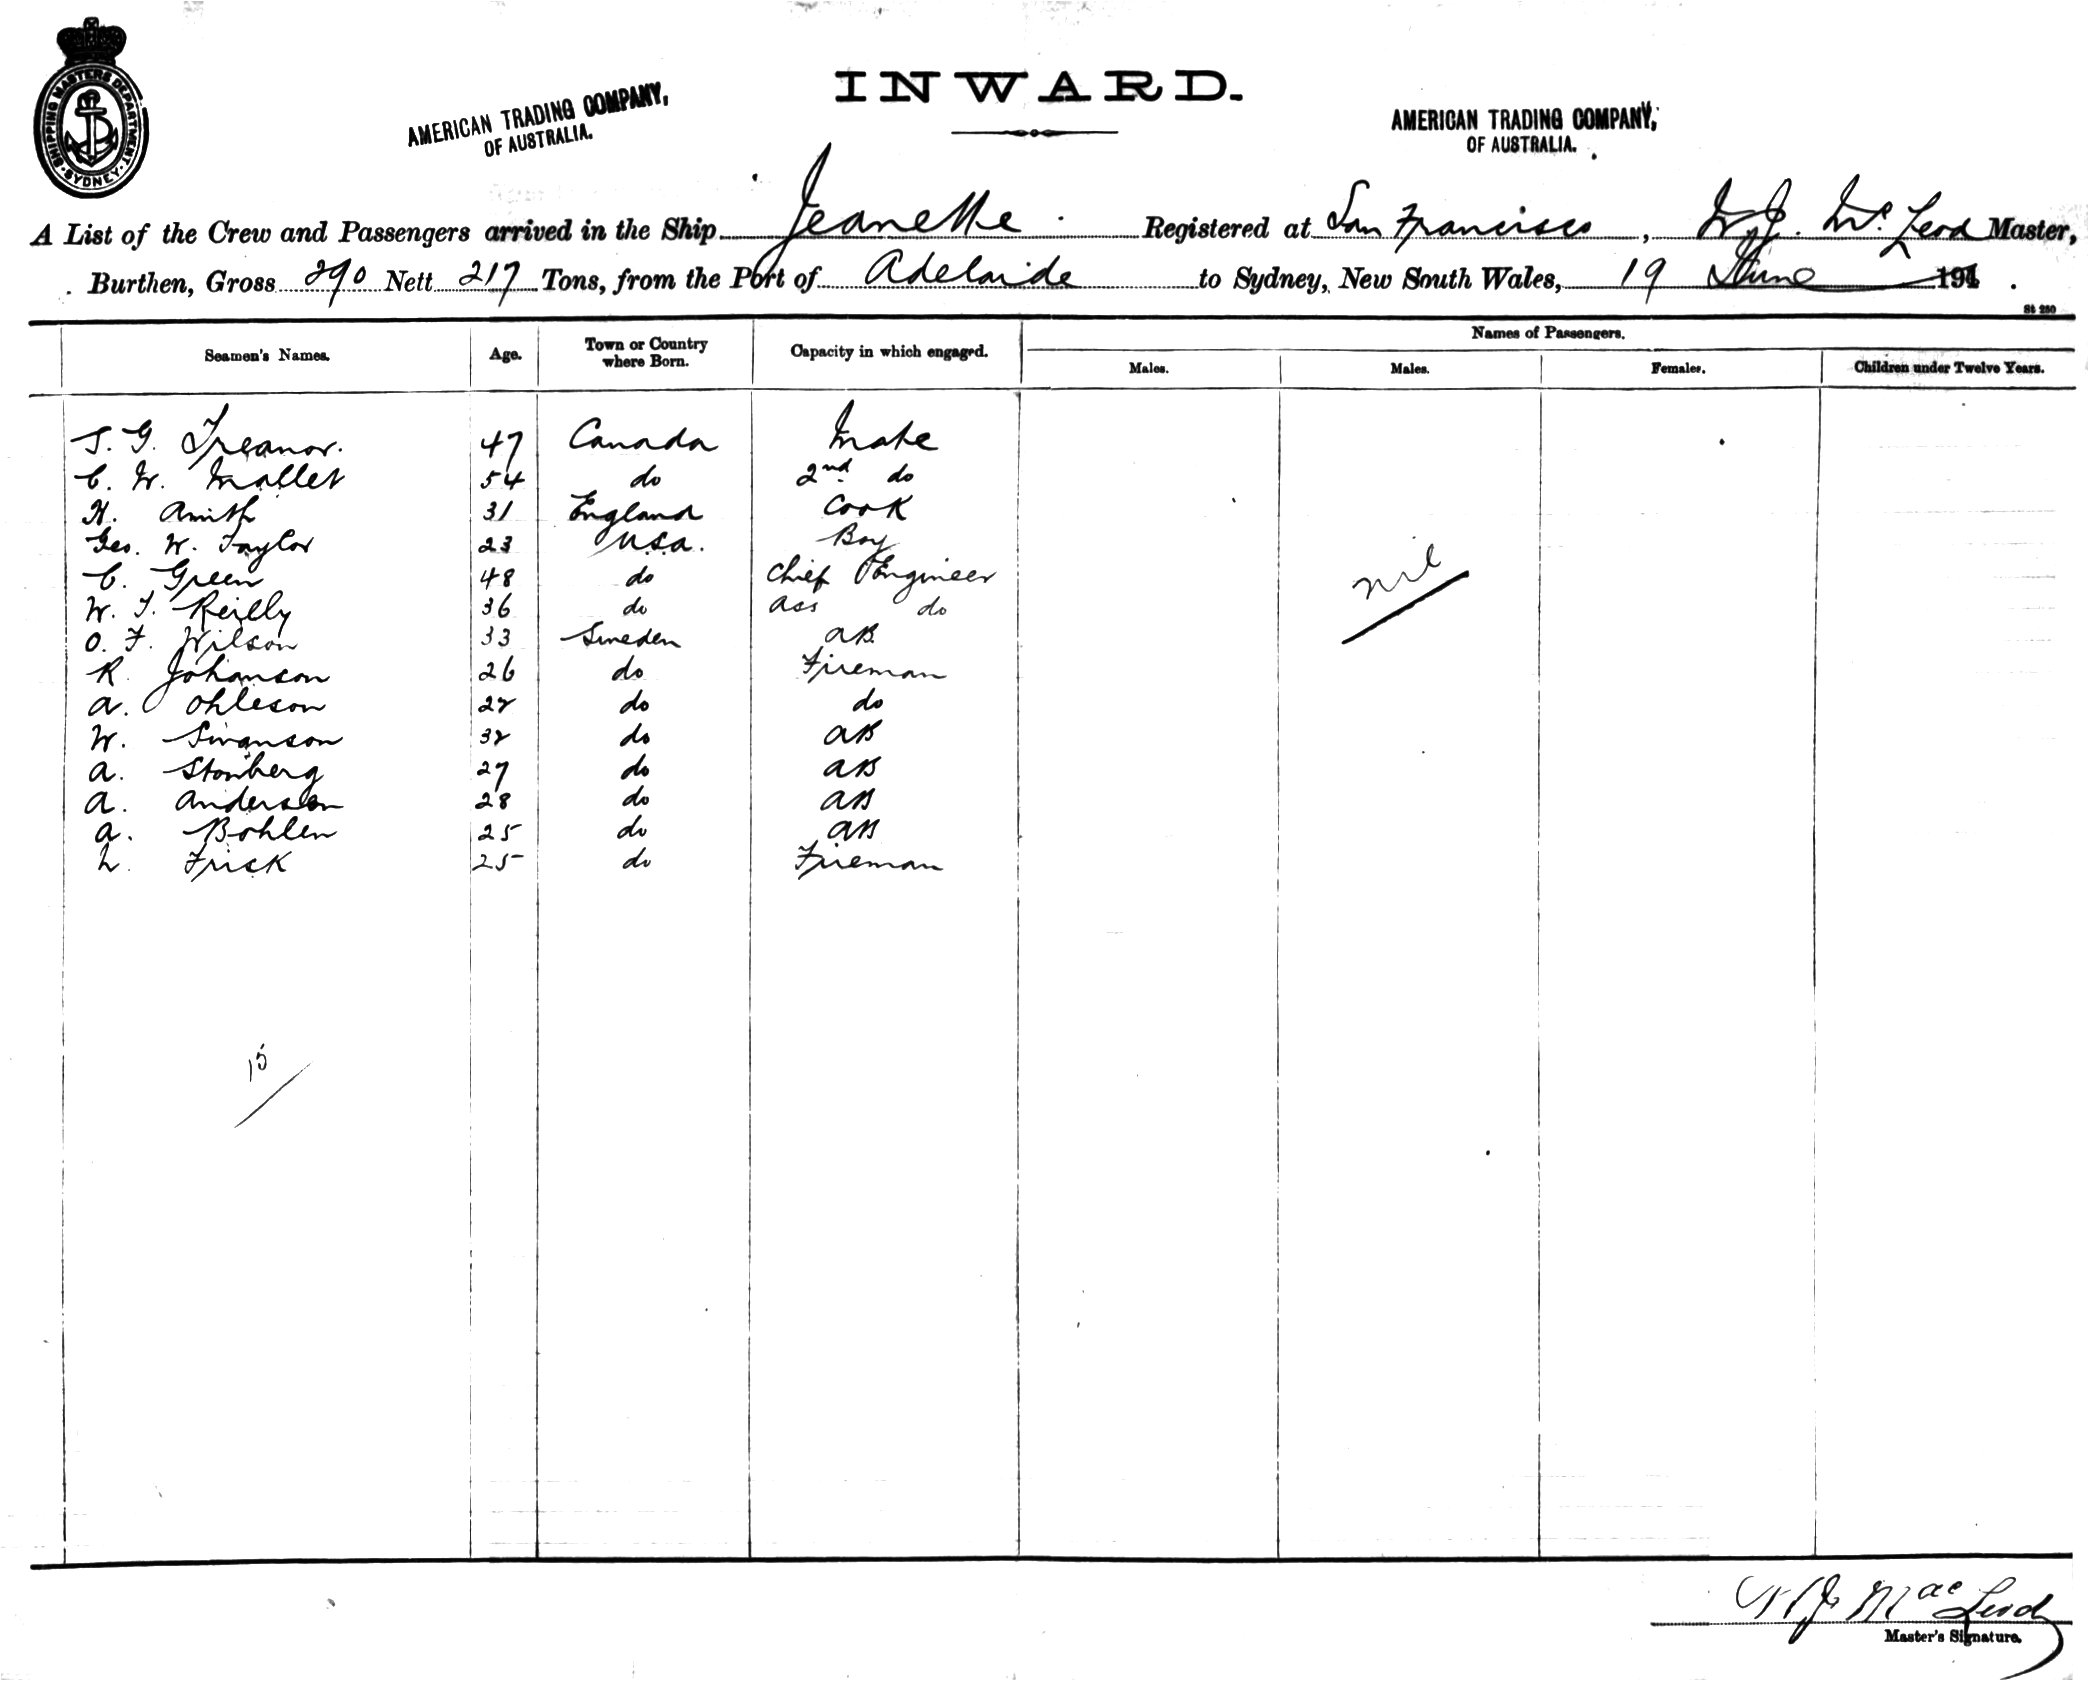 SHIPPING MASTERS DEPARTMENT
SYDNEY
INWARD.
AMERICAN TRADING COMPANY,
OF AUSTRALIA.
AMERICAN TRADING COMPANY,
OF AUSTRALIA.
A List of the Crew and Passengers arrived in the Ship Jeanette Registered at San Francisco, W. J. McLeod Master,
Burthen, Gross 290 Nett 217 Tons, from the Port of Adelaide to Sydney, New South Wales, 19 June 191
St 250
Seamen's Names. Age. Town or Country where Born. Capacity in which engaged. Names of Passengers.
Males. Males. Females. Children under Twelve Years.
J. G. Treanor. 47 Canada Mate
C. W. Mallet 54 do 2nd do
H. Amith 31 England Cook
Geo. W. Taylor 23 U.S.A. Boy
C. Green 48 do Chief Engineer
W. J. Reilly 36 do Ass do
O. F. Wilson 33 Sweden AB
R. Johanson 26 do Fireman
A. Ohleson 22 do do
W. Swanson 32 do AB
A. Stonberg 27 do AB
A. Anderson 28 do AB
A. Bohlen 25 do AB
L. Frisk 25 do Fireman
nil
15
W J MacLeod
Master's Signature.